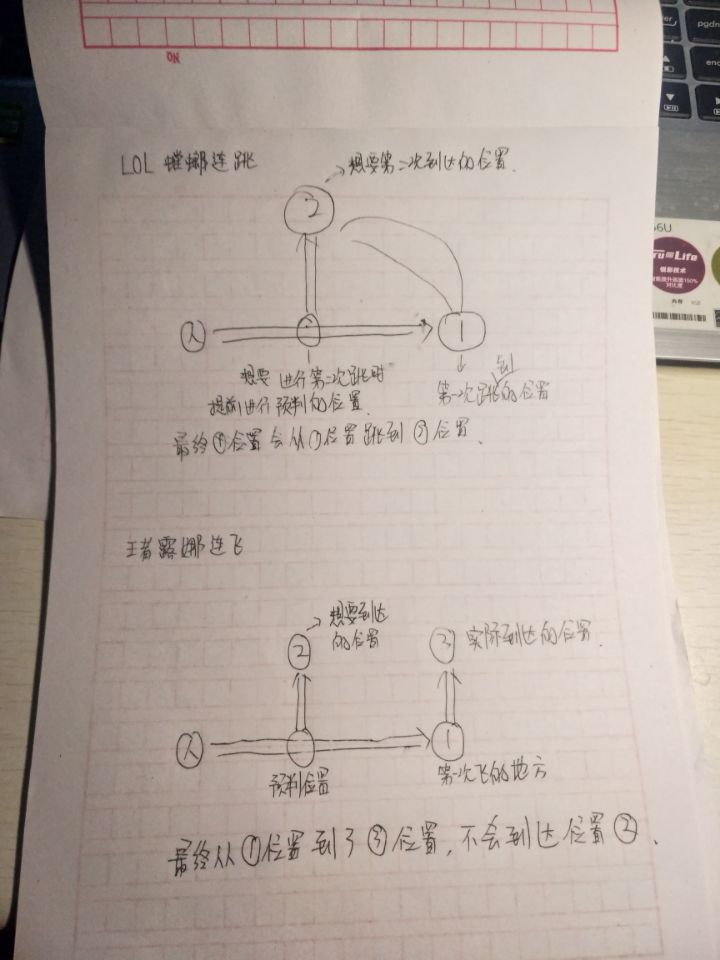 pgdn
LOL 螳螂连跳
想要第二次到达的位置.
2
人
1
想要进行第二次跳时
提前进行预判的位置.
第一次跳到的位置
最终①位置会从①位置跳到②位置.
王者露娜连飞
想要到达
的位置
2
3
实际到达的位置.
人
1
预判位置
第一次飞的地方
最终从①位置到了③位置,不会到达位置②.
56U
Tru Life